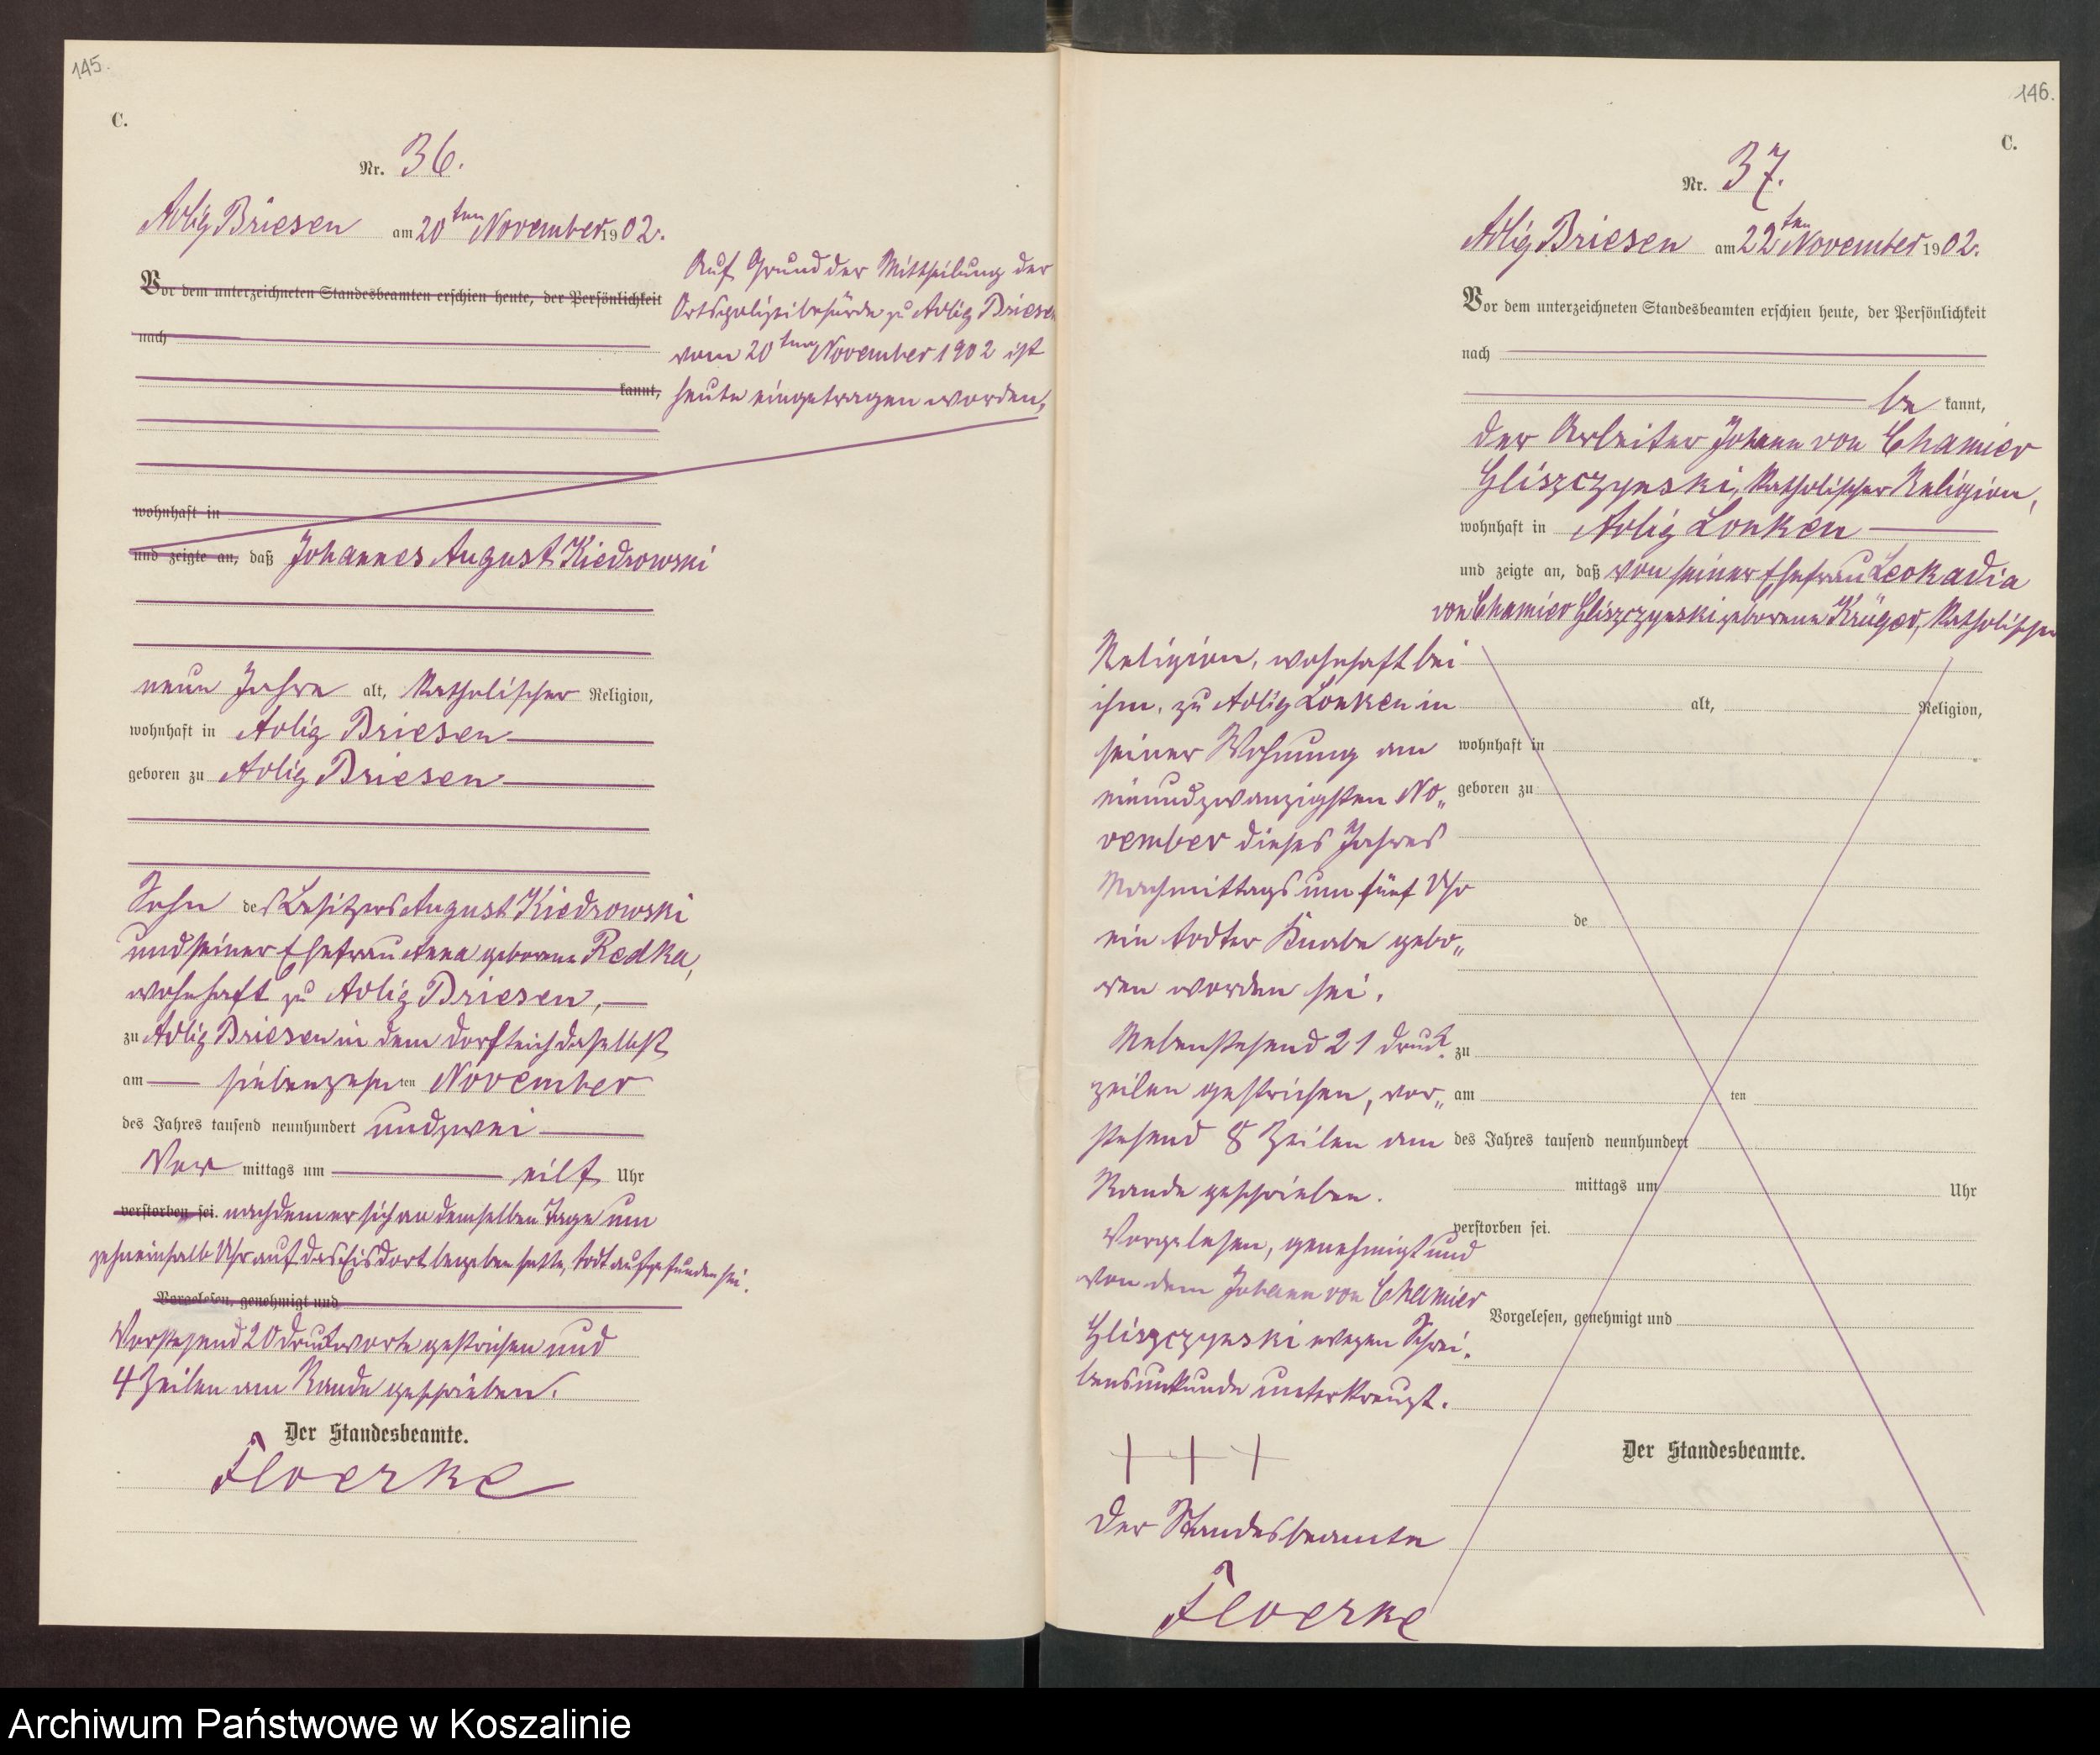 145.
C.
Nr. 36.
Adlig Briesen am 20ten November 1902.
Vor dem unterzeichneten Standesbeamten erschien heute, der Persönlichkeit
nach
kannt,
Auf Grund der Mittheilung der
Ortspolizeibehörde zu Adlig Briesen
vom 20ten November 1902 ist
heute eingetragen worden,
wohnhaft in
und zeigte an, daß Johannes August Kiedrowski
neun Jahre alt, katholischer Religion,
wohnhaft in Adlig Briesen
geboren zu Adlig Briesen
Sohn des Besitzers August Kiedrowski
und seiner Ehefrau Anna geborene Redka,
wohnhaft zu Adlig Briesen,
zu Adlig Briesen in dem Dorfteich daselbst
am siebenzehnten November
des Jahres tausend neunhundert undzwei
Vor mittags um eilf Uhr
verstorben sei. nachdem er sich an demselben Tage um
zehneinhalb Uhr auf das Eis dort begeben hatte, todt aufgefunden sei.
Vorgelesen, genehmigt und
Vorstehend 20 Druckworte gestrichen und
4 Zeilen am Rande geschrieben.
Der Standesbeamte.
Floerke
146.
C.
Nr. 37.
Adlig Briesen am 22ten November 1902.
Vor dem unterzeichneten Standesbeamten erschien heute, der Persönlichkeit
nach
be kannt,
der Arbeiter Johann von Chamier
Gliszczynski, katholischer Religion,
wohnhaft in Adlig Lonken
und zeigte an, daß von seiner Ehefrau Leokadia
von Chamier Gliszczynski geborene Krüger, katholischer
Religion, wohnhaft bei
ihm, zu Adlig Lonken in
alt, Religion,
seiner Wohnung am
wohnhaft in
einundzwanzigsten No„
geboren zu
vember dieses Jahres
Nachmittags um fünf Uhr
de
ein todter Knabe gebo„
ren worden sei.
Nebenstehend 21 Druck„
zu
zeilen gestrichen, vor„
am ten
stehend 8 Zeilen am
des Jahres tausend neunhundert
Rande geschrieben.
mittags um Uhr
verstorben sei.
Vorgelesen, genehmigt und
von dem Johann von Chamier
Vorgelesen, genehmigt und
Gliszczynski wegen Schrei„
bensunkunde unterkreuzt.
+ + +
Der Standesbeamte.
Der Standesbeamte
Floerke
Archiwum Państwowe w Koszalinie